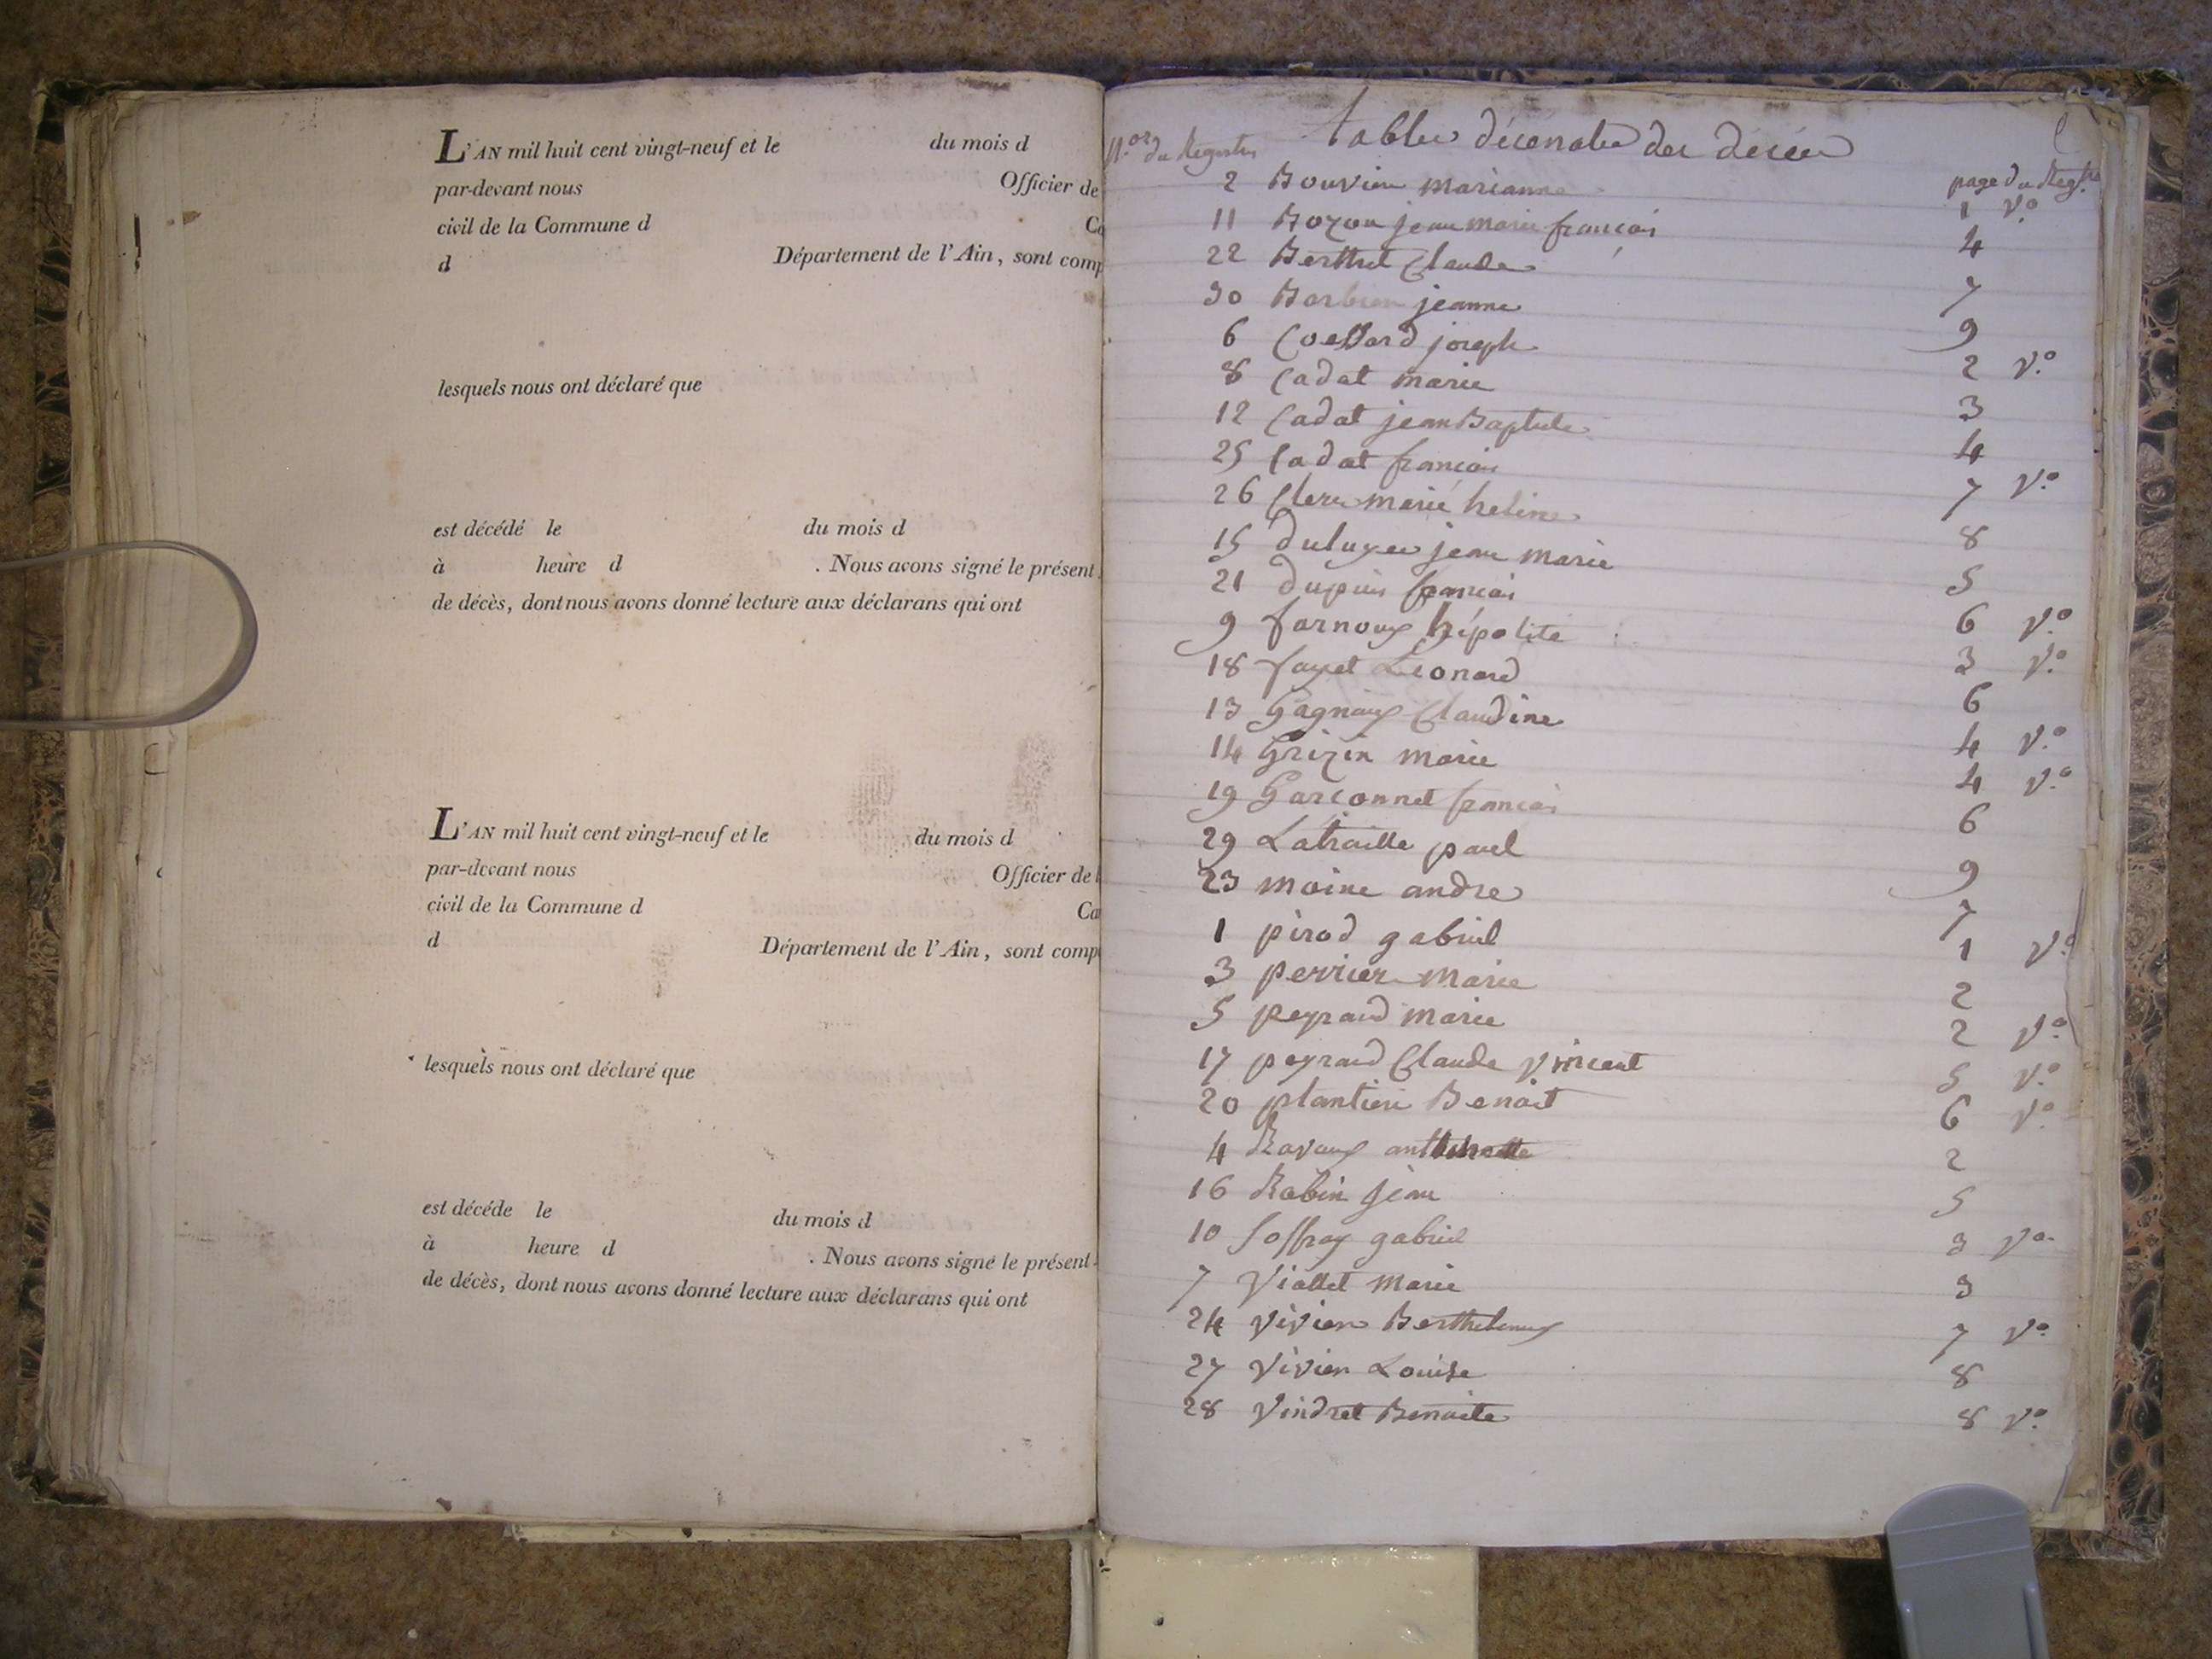 L'AN mil huit cent vingt-neuf et le du mois d
par-devant nous Officier de
civil de la Commune d
d Département de l'Ain, sont comp
lesquels nous ont déclaré que
est décédé le du mois d
à heure d . Nous avons signé le présent
de décès, dont nous avons donné lecture aux déclarans qui ont
L'AN mil huit cent vingt-neuf et le du mois d
par-devant nous Officier de l
civil de la Commune d Ca
d Département de l'Ain, sont comp
lesquels nous ont déclaré que
est décéde le du mois d
à heure d . Nous avons signé le présent
de décès, dont nous avons donné lecture aux déclarans qui ont
N.os du Registre table décenale des décés page du Reg.tre
2 Bouvier marianne 1 V.o
11 Bozon jean marie françois 4
22 Berthet Claude 7
30 Barbier jeanne 9
6 joseph 2 V.o
8 Cadat marie 3
12 Cadat jean Baptiste 4
25 Cadat françois 7 V.o
26 Clerc marie heline 8
15 jean marie 5
21 dupuis françois 6 V.o
9 farnoux hipolite 3 V.o
18 fayet Leonard 6
13 Gagnoux Claudine 4 V.o
14 Grizin marie 4 V.o
19 Garconnet françois 6
29 Latraille paul 9
23 moine andre 7
1 pirod gabriel 1 V.o
3 perrier marie 2
5 peyraud marie 2 V.o
17 peyraud Claude Vincent 5 V.o
20 plantier Benoit 6 V.o
4 Ravoux 2
16 Robin jean 5
10 Soffray gabriel 3 V.o
7 Viallet marie 3
24 Vivien Berthelemy 7 V.o
27 Vivien Louise 8
28 Vindret Benoite 8 V.o